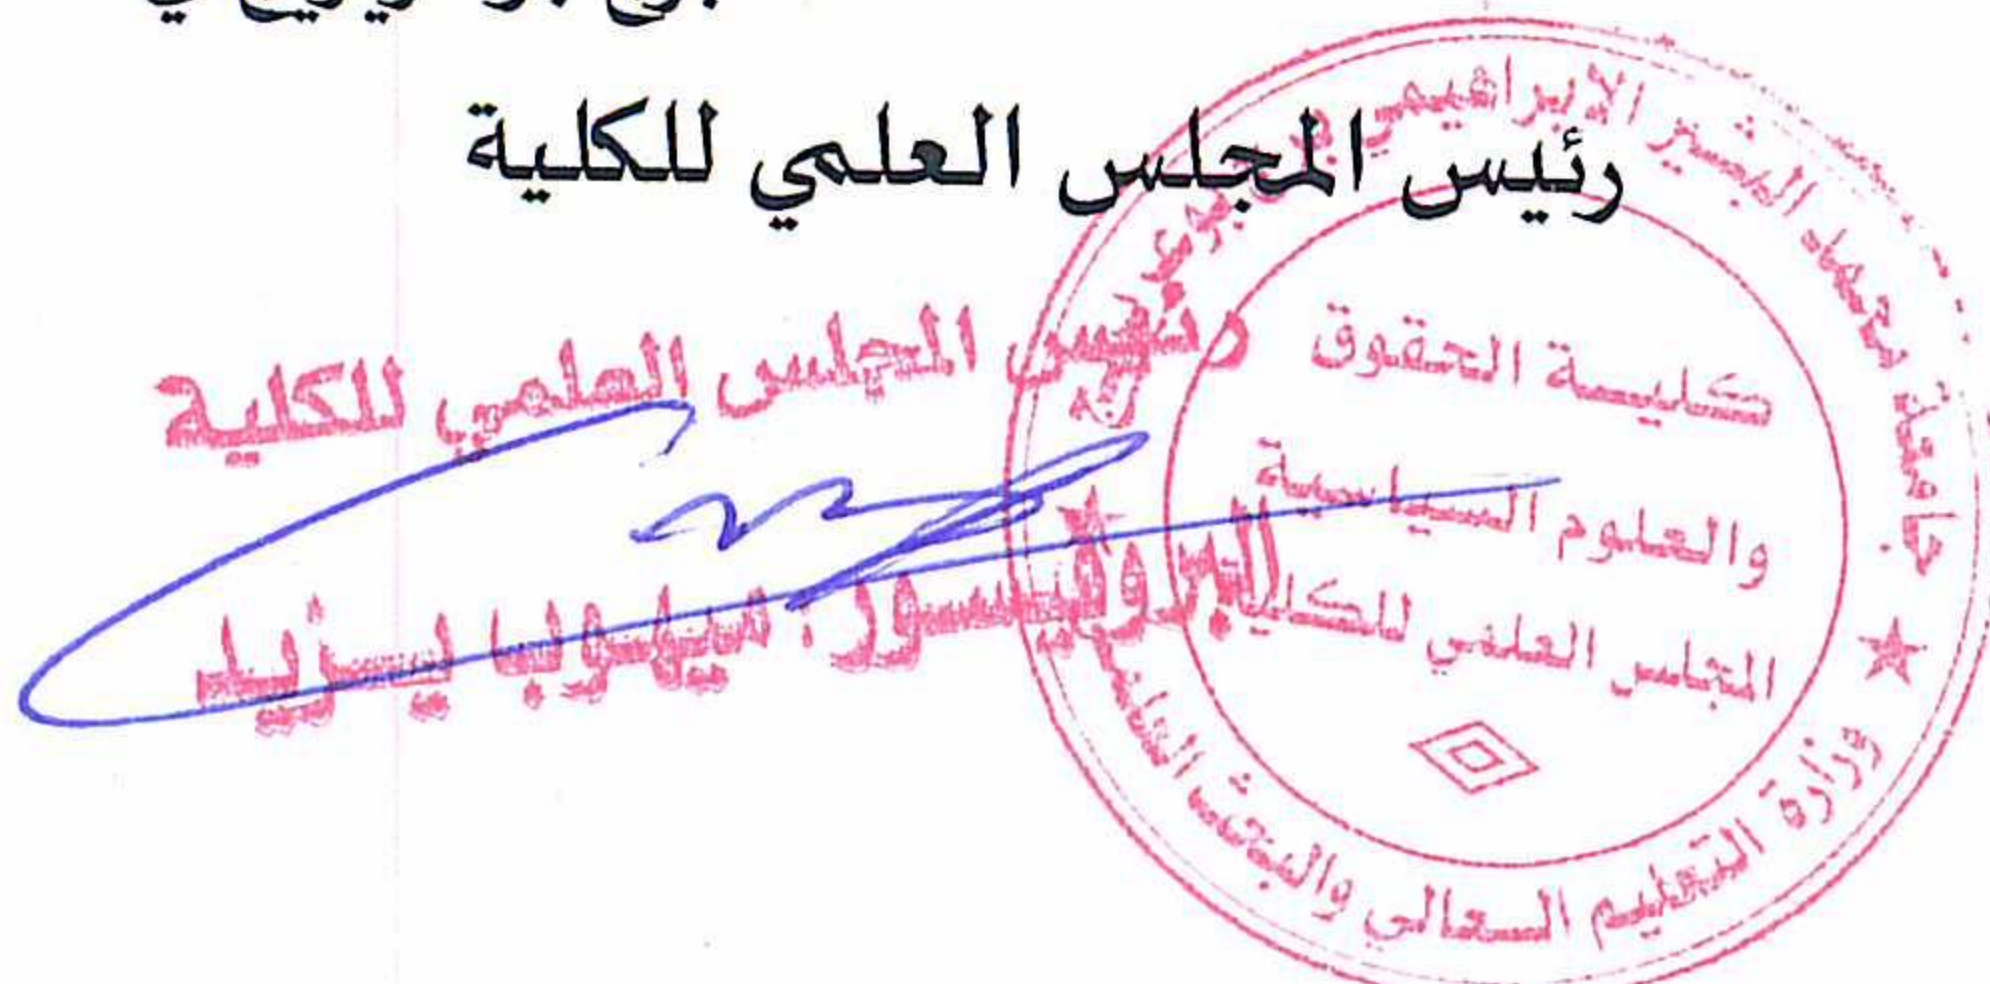 برج بوعريريج في
رئيس المجلس العلمي للكلية
رئيس المجلس العلمي للكلية
البروفيسور: ميهوب يزيد
جامعة محمد البشير الإبراهيمي برج بوعريريج
كلية الحقوق
والعلوم السياسية
المجلس العلمي للكلية
وزارة التعليم العالي والبحث العلمي